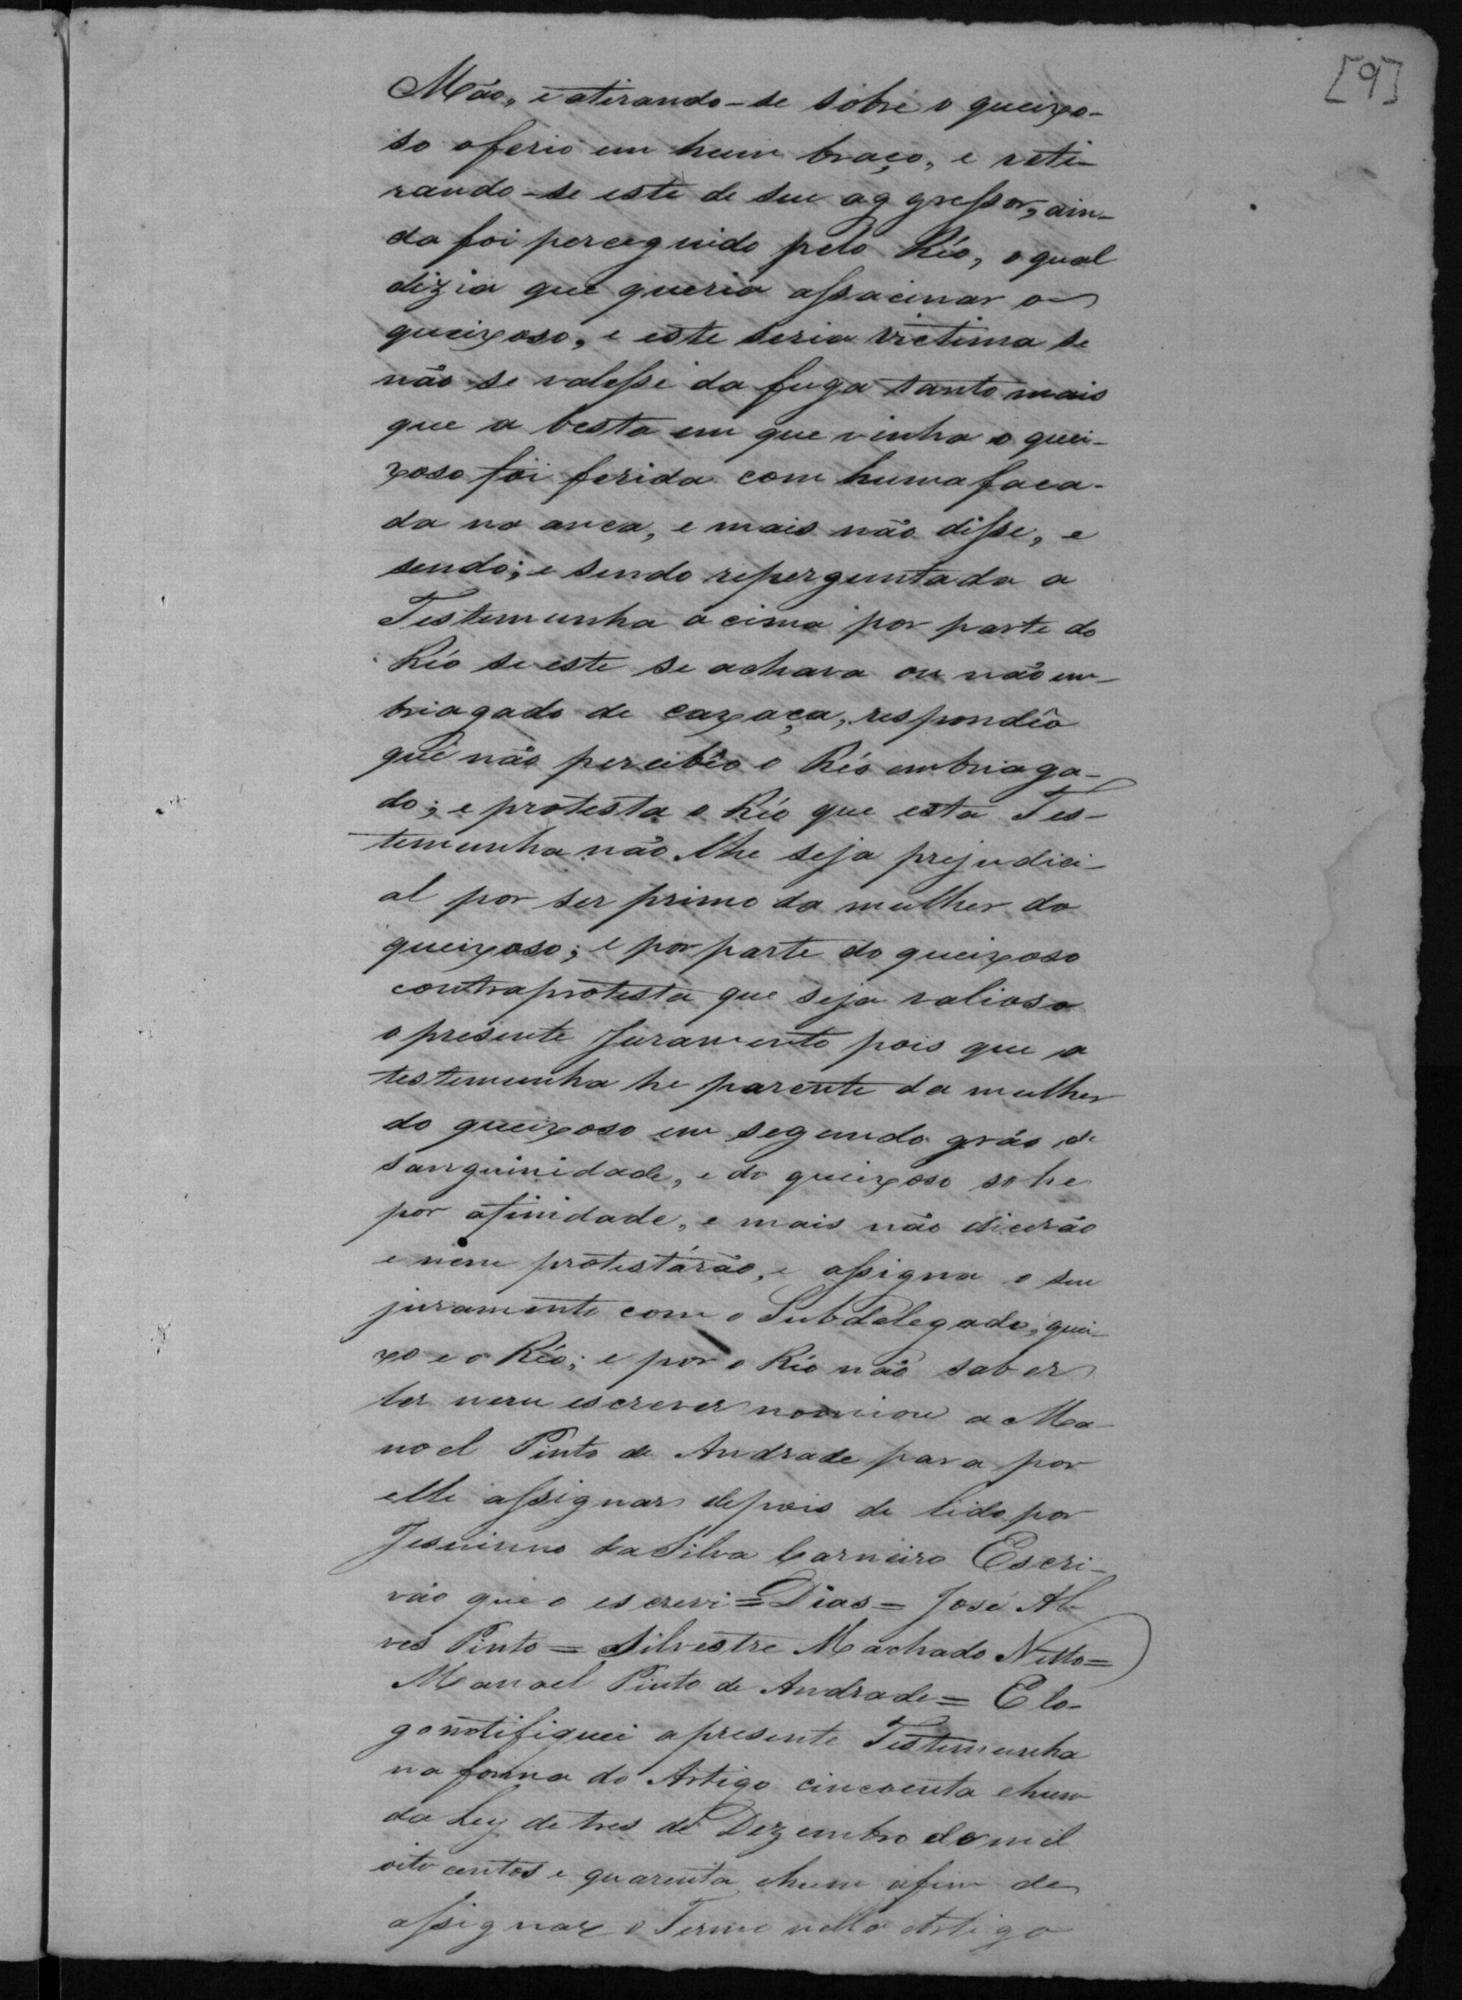 [9]
Mão, e atirando-se sobre o queixo-
so oferio em hum braço, e reti-
rando-se este de seu aggressor, ain-
da foi perceguido pelo Réo, o qual
dizia que queria assacinar o
queixoso, e este seria victima se
não se valesse da fuga tanto mais
que a besta em que vinha o quei-
xoso foi ferida com huma faca-
da na anca, e mais não disse, e
sendo; e sendo reperguntada a
Testemunha acima por parte do
Réo se este se achava ou não em-
briagado de caxaça, respondêo
que não percibêo o Réo embriaga-
do; e protesta o Réo que esta Tes-
temunha não lhe seja prejudici-
al por ser primo da mulher do
queixoso; e por parte do queixoso
contraprotesta que seja valioso
o presente Juramento pois que a
testemunha he parente da mulher
do queixoso em segundo gráo de
sanguinidade, e do queixoso so he
por afinidade, e mais não dicerão
e nem protestárão, e assigna o seu
juramento com o Subdelegado, quei-
xo e o Réo; e por o Réo não saber
ler nem escrever nomiou a Ma-
noel Pinto de Andrade para por
elle assignar depois de lido por
Jesuino da Silva Carneiro Escri-
vão que o escrevi = Dias = José Al-
ves Pinto = Silvestre Machado Netto =
Manoel Pinto de Andrade = E lo-
go notifiquei a presente Testemunha
na forma do Artigo cincoenta e hum
da Ley de tres de Dezembro de mil
oito centos e quarenta e hum afim de
assignar o Termo nello Artigo